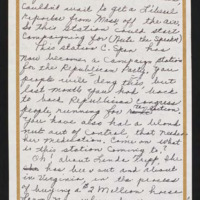 Couldn't wait to get a Liberal
Reporter from Wash off the air,
So This Station Could start
Campaigning for (Newt the Speaker)
This station C-Span has
Now become a Campaign station
for the Republican Party. Your
people will deny this but
last month you had back
to back Republican Congress
people running for
You also had a blond
nut out of Control, that needs
her Medication. Come on what
is this station Coming to?
Oh! about Linda Tripp She
has been out and about
in Virginia, in the process
of buying a $2 Million house